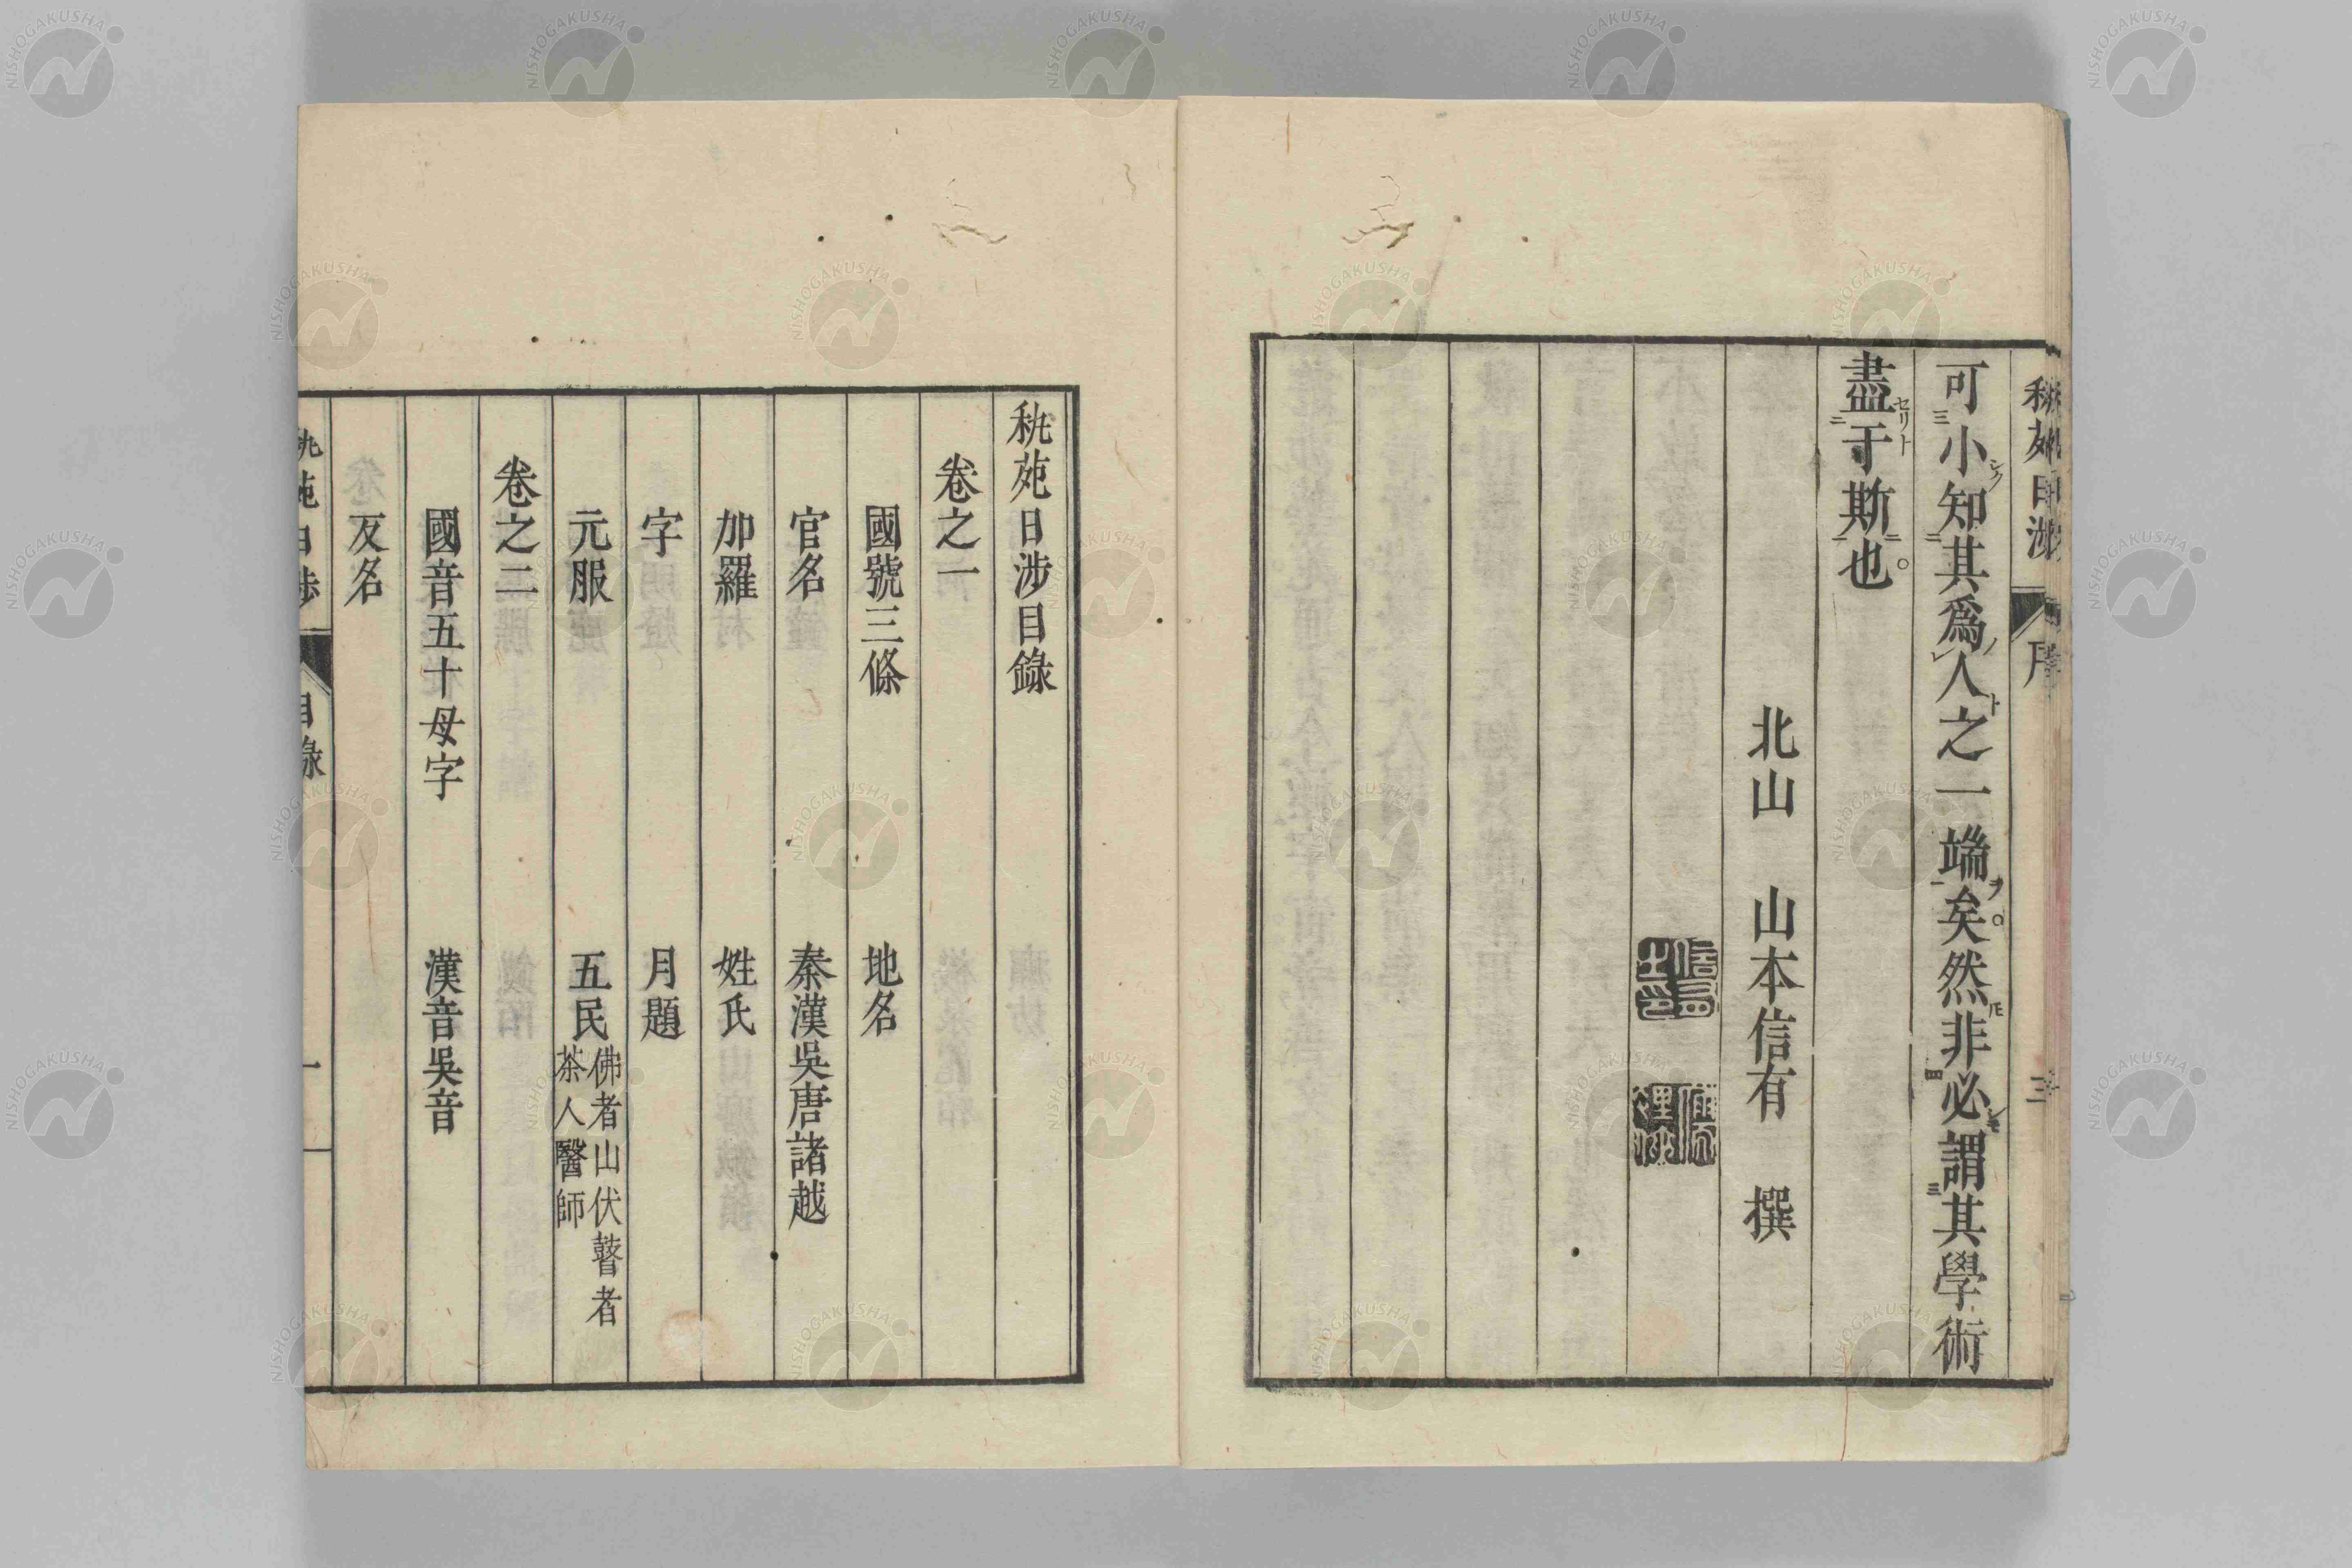 可小知其爲人之一端矣。然非必謂其學術
盡于斯也。
北山 山本信有 撰
秇苑日渉目錄
卷之一
國號三條 地名
官名 秦漢吳唐諸越
加羅 姓氏
字 月題
元服 五民 佛者山伏瞽者
茶人醫師
卷之二
國音五十母字 漢音吳音
反名
目錄 一
NISHOGAKUSHA